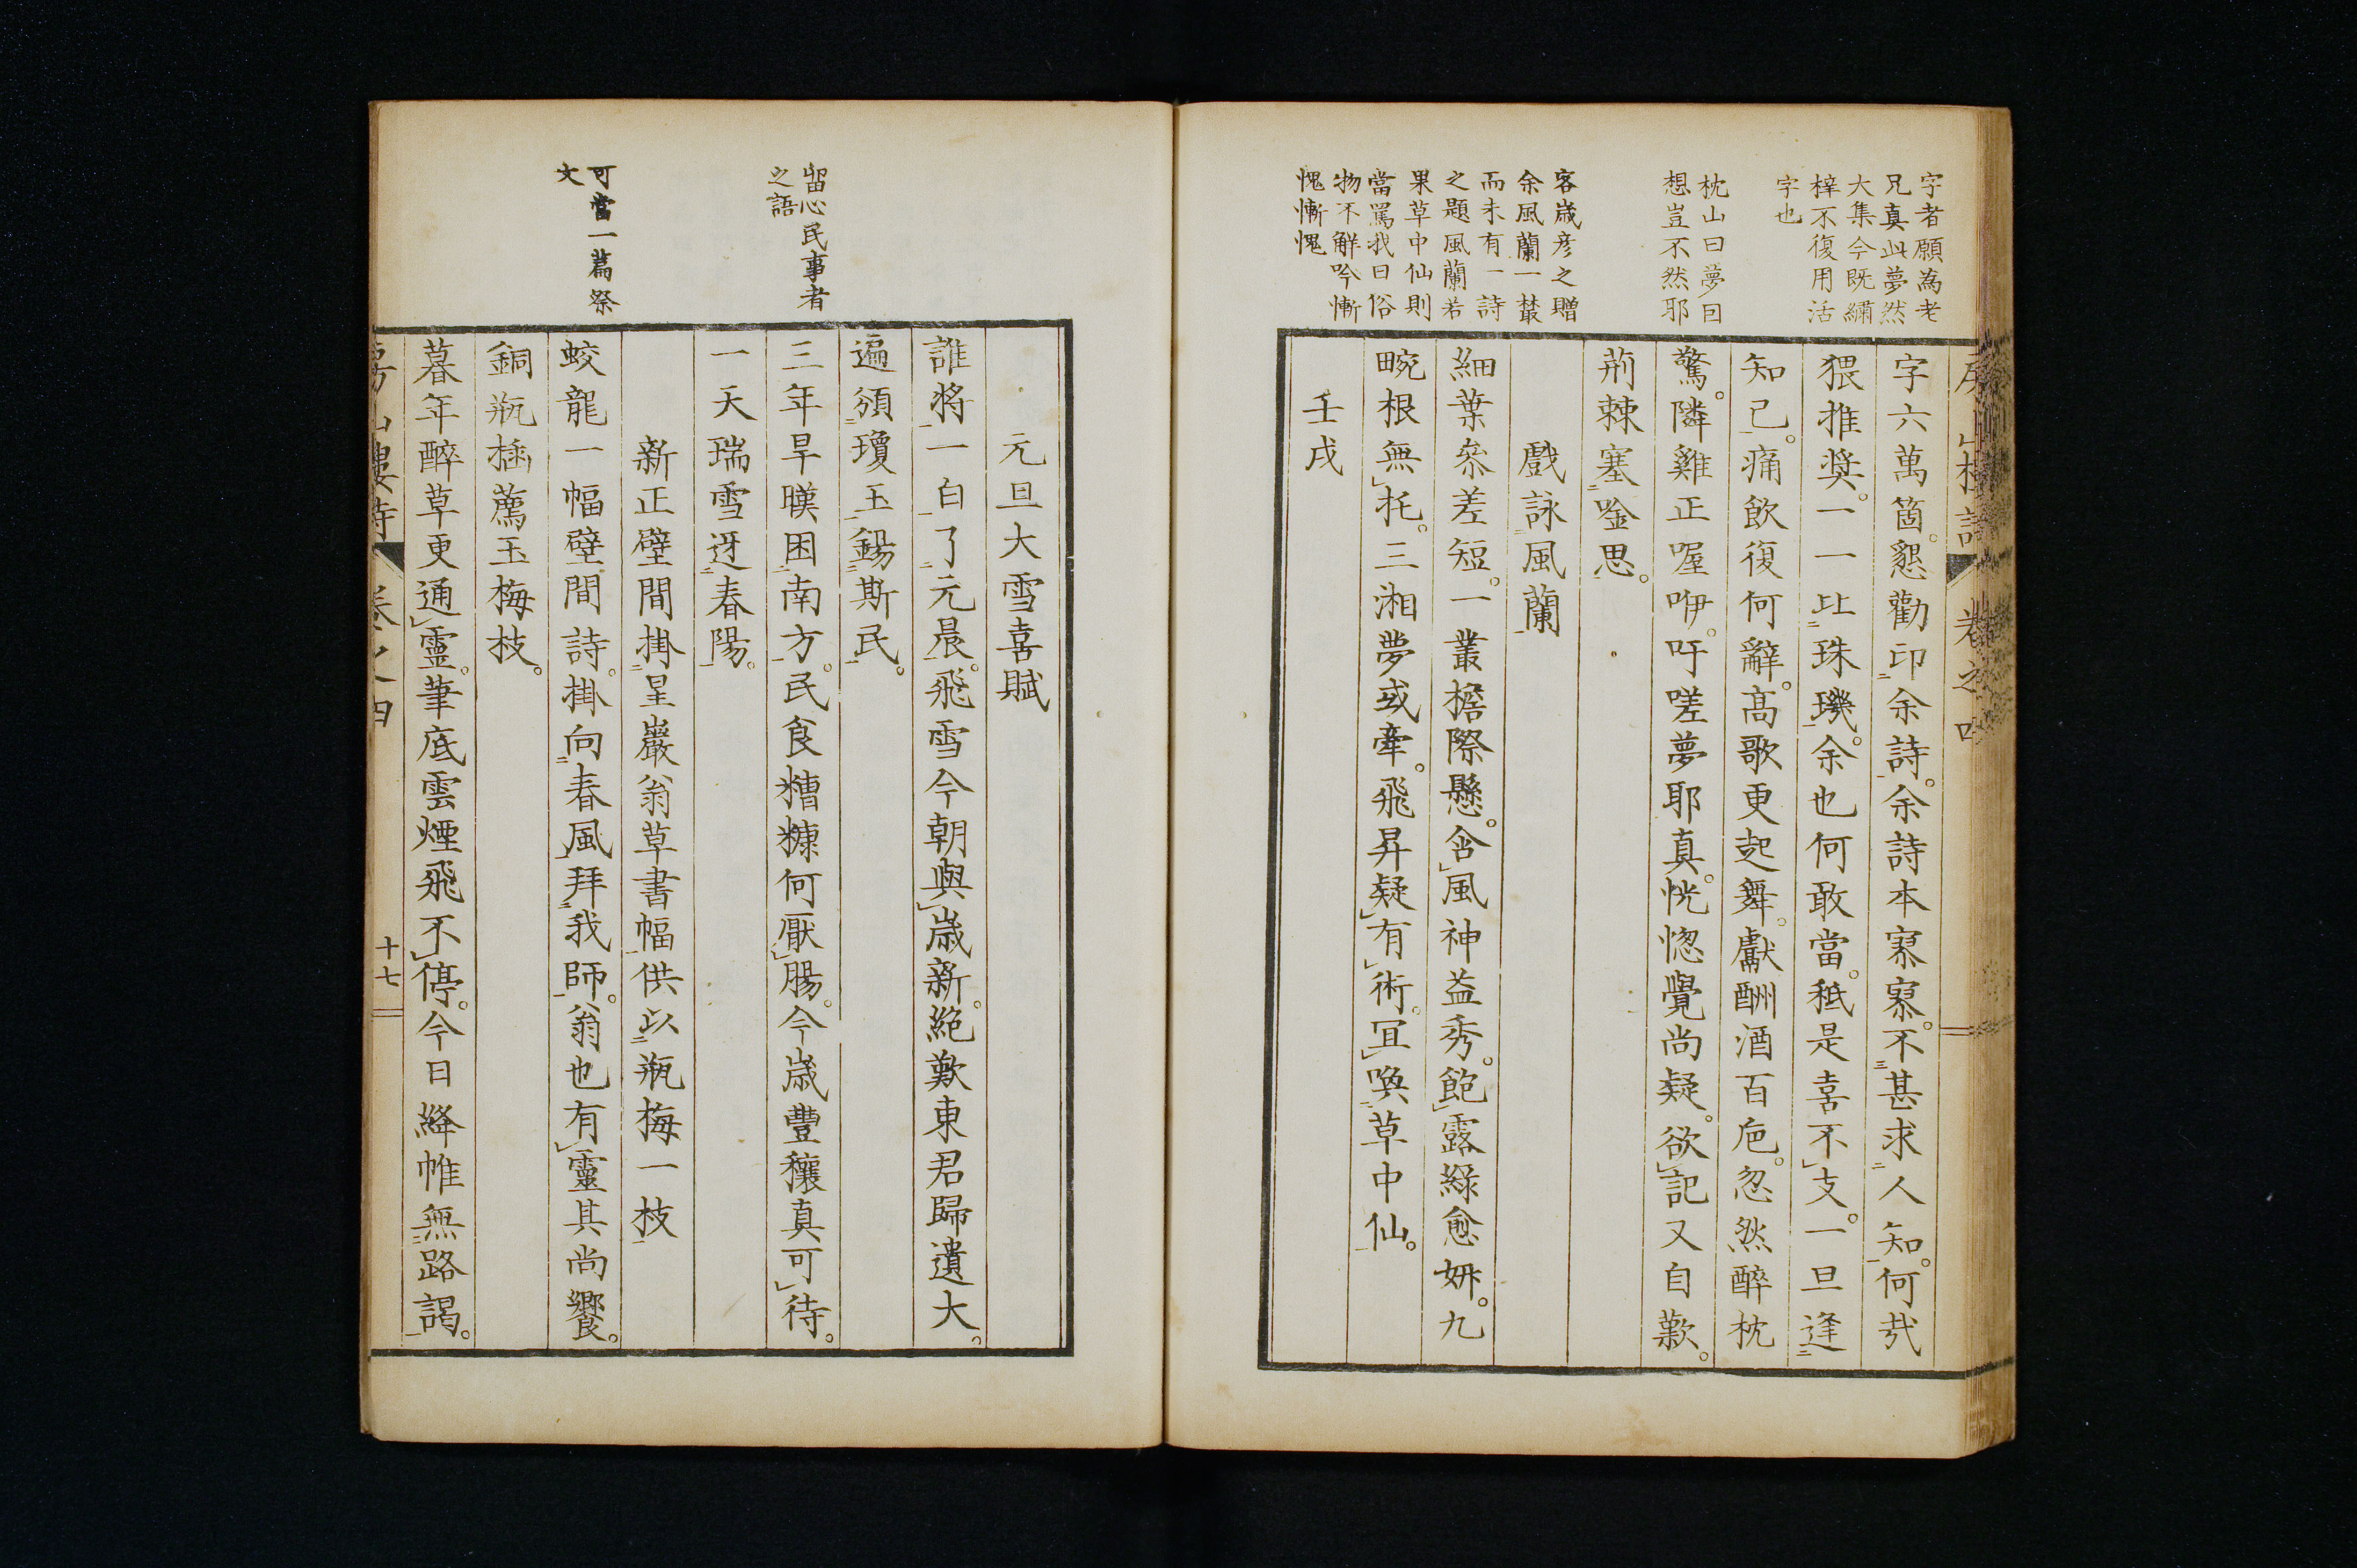 字者願為老
兄真此夢然
大集今既繡
梓不復用活
字也
枕山曰夢回
想豈不然耶
客歲彦之贈
余風蘭一叢
而未有一詩
之題風蘭若
果草中仙則
當罵我曰俗
物不解吟慚
愧慚愧
卷之
字六萬箇。懇勸印余詩。余詩本寡寡。不甚求人知。何哉
猥推奨。一一比珠璣。余也何敢當。秪是喜不支。一旦逢
知己。痛飲復何辭。高歌更起舞。獻酬酒百巵。忽然醉枕
驚。隣雞正喔咿。吁嗟夢耶真。恍惚覺尚疑。欲記又自歎。
荊棘塞唫思。
戲詠風蘭
細葉參差短。一叢檐際懸。含風神益秀。飽露綠愈妍。九
畹根無托。三湘夢或牽。飛昇疑有術。冝喚草中仙。
壬戌
留心民事者
之語
可當一篇祭
文
元旦大雪喜賦
誰將一白了元晨。飛雪今朝與歲新。絶歎東君歸遺大。
遍頒瓊玉錫斯民。
三年旱暵困南方。民食糟糠何厭腸。今歲豐穰真可待。
一天瑞雪迓春陽。
新正壁間掛星巖翁草書幅供以瓶梅一枝
蛟龍一幅壁間詩。掛向春風拜我師。翁也有靈其尚饗。
銅瓶插薦玉梅枝。
暮年醉草更通靈。筆底雲煙飛不停。今日絳帷無路謁。
卷之四
十七